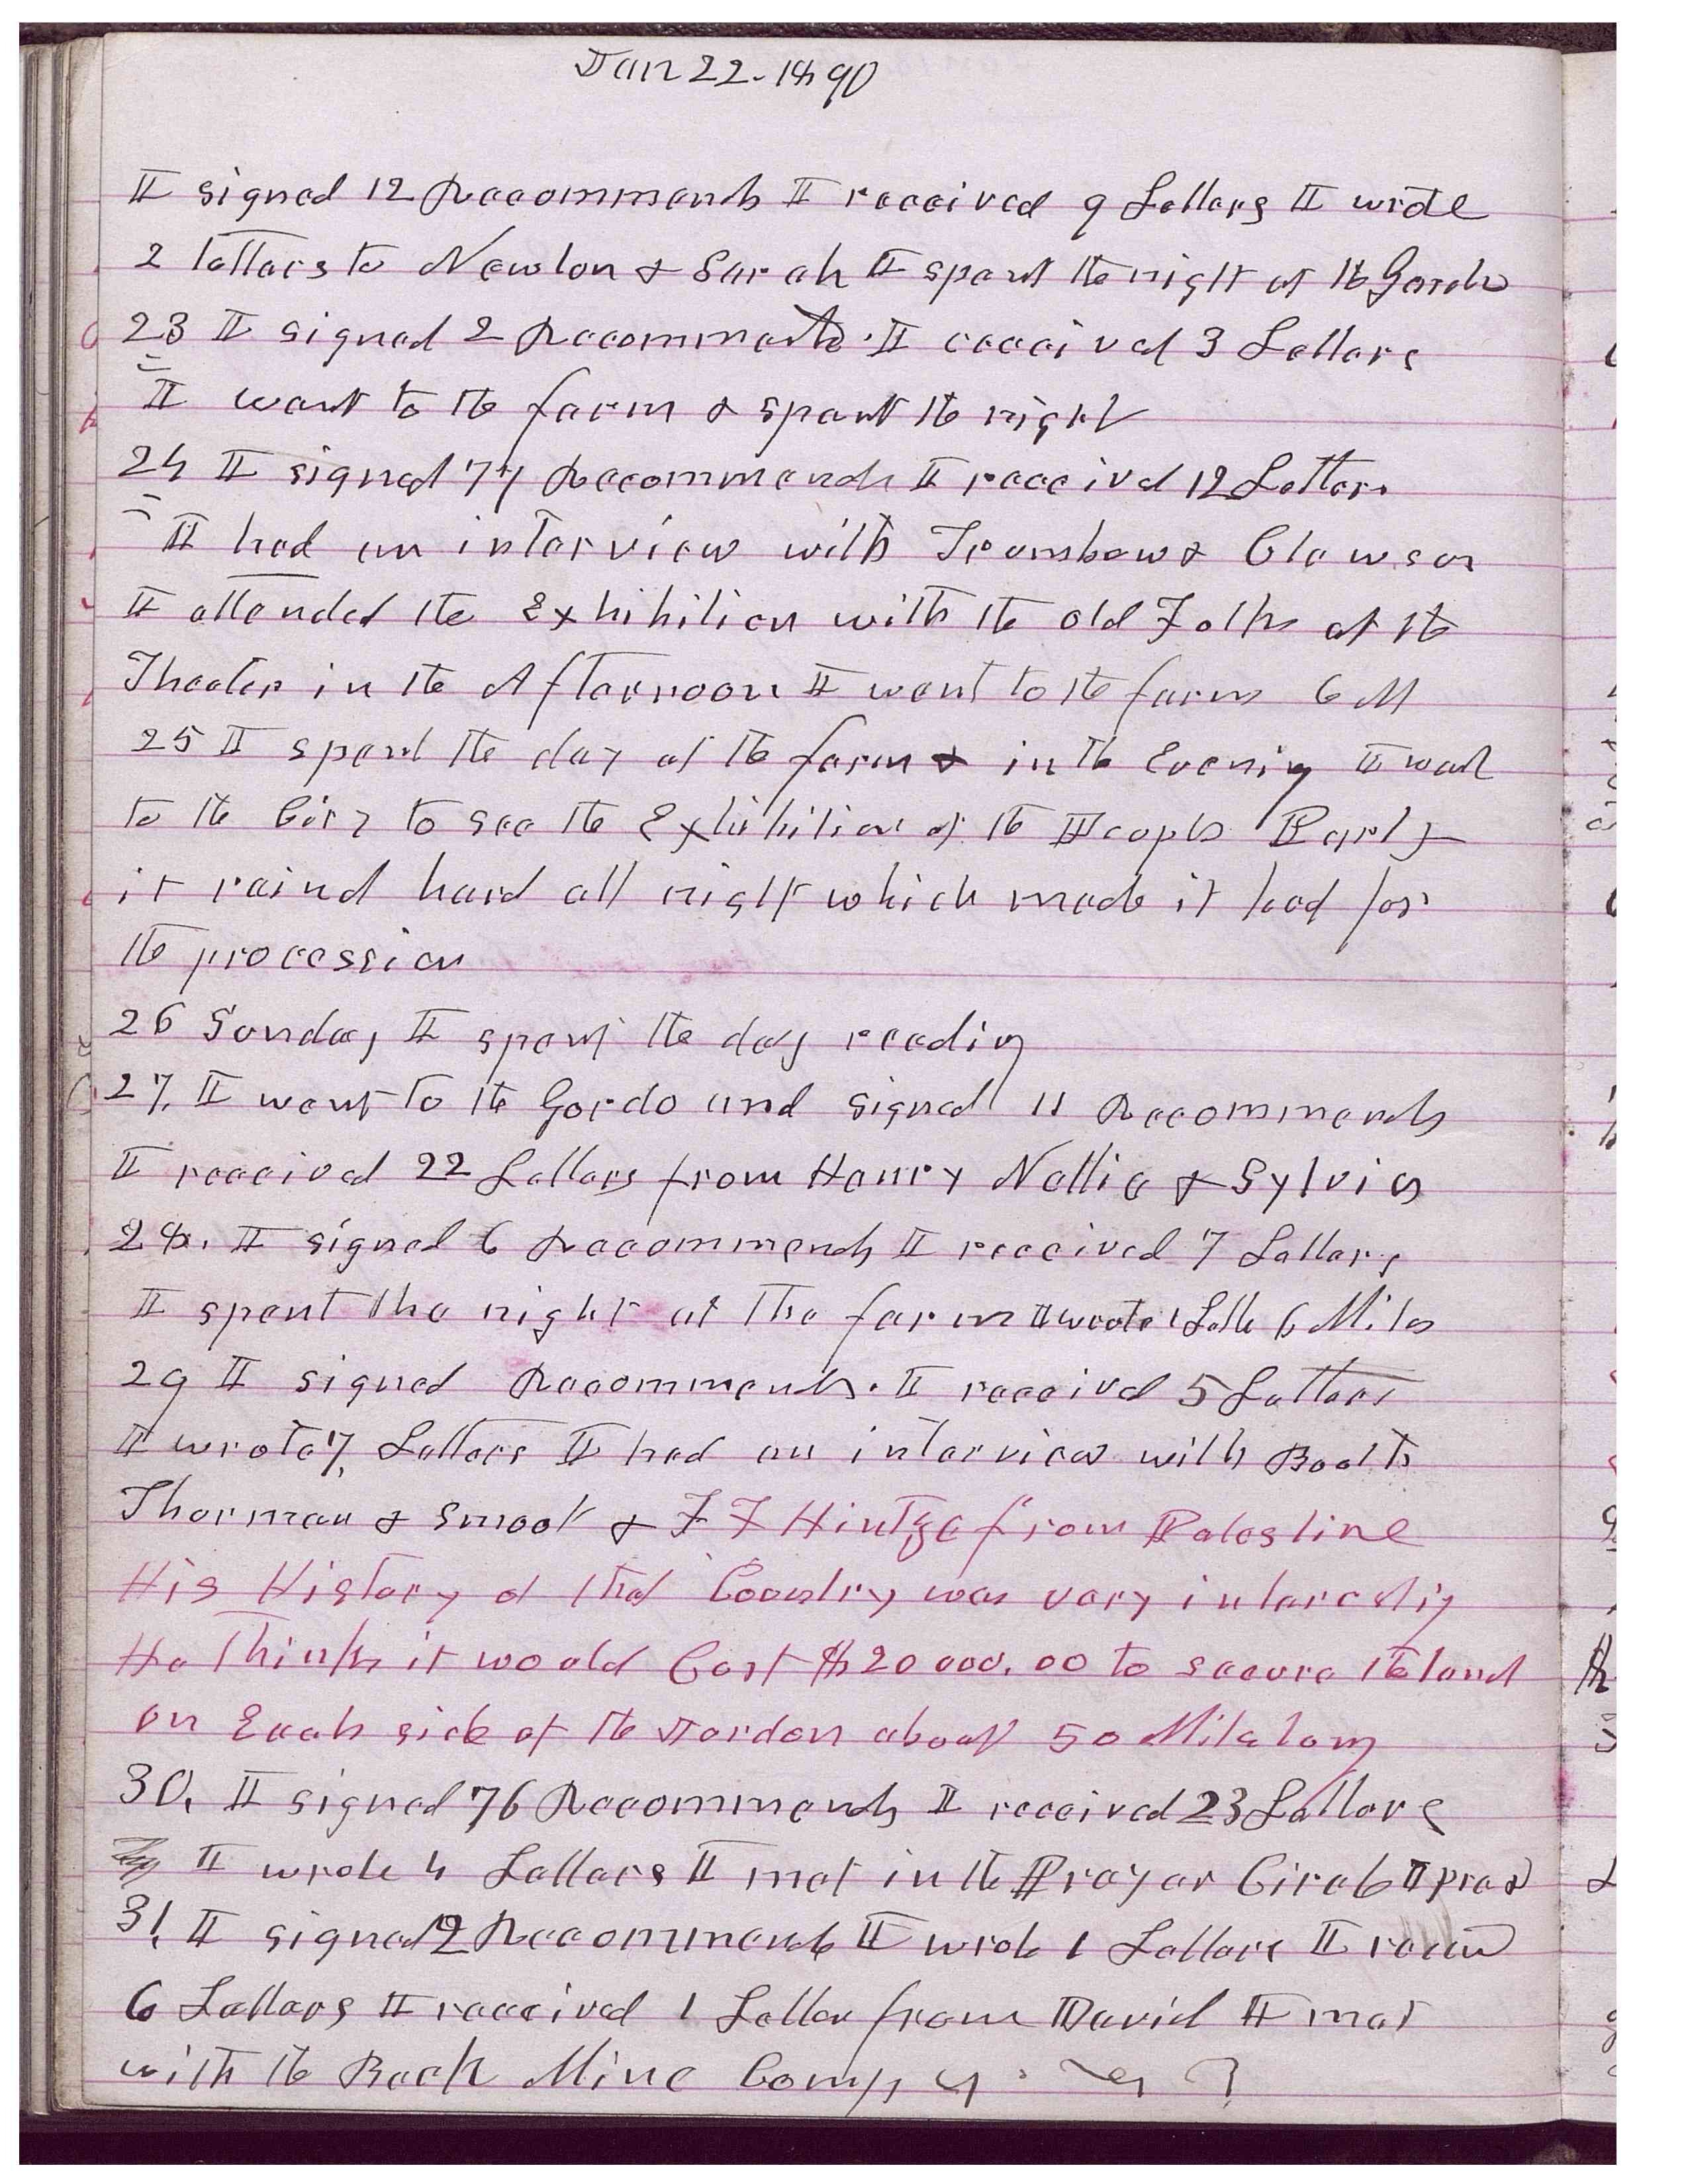 Jan 22. 1890
I signed 12 Recommends I received 9 Letters I wrote
2 letters to Newton & Sarah I spent the night at the Gardo
23 I signed 2 Recommends. I received 3 Letters
I went to the farm & spent the night
24 I signed 77 Recommends I received 12 Letters
I had an interview with Trumbow & Clawson
I attended the Exhibition with the old Folks at the
Theater in the Afternoon I went to the farm 6 M
25 I spent the day at the farm & in the Evening I went
to the City to see the Exhibition of the Peoples Party
it raind hard all night which made it bad for
the procession
26 Sunday I spent the day reading
27. I went to the Gardo and signed 11 Recommends
I received 22 Letters from Henry Nellie & Sylvia
28. I signed 6 Recommends I received 7 Letters
I spent the night at the farm I wrote 1 Letter 6 Miles
29 I signed Recommends. I received 5 Letters
I wrote 7 Letters I had an interview with
Thorman & Smoot & F F Hintze from Palestine
His History of that Country was very interesting
He Thinks it would Cost $20000.00 to secure the land
on Each side of the Jordon about 50 Mile long
30. I signed 76 Recommends I received 23 Letters
I wrote 4 Letters I met in the Prayer Circle I pras
31. I signed 2 Recommends I wrote 1 Letters I receivd
6 Letters I received 1 Letter from David I met
with the Buck Mine Comp